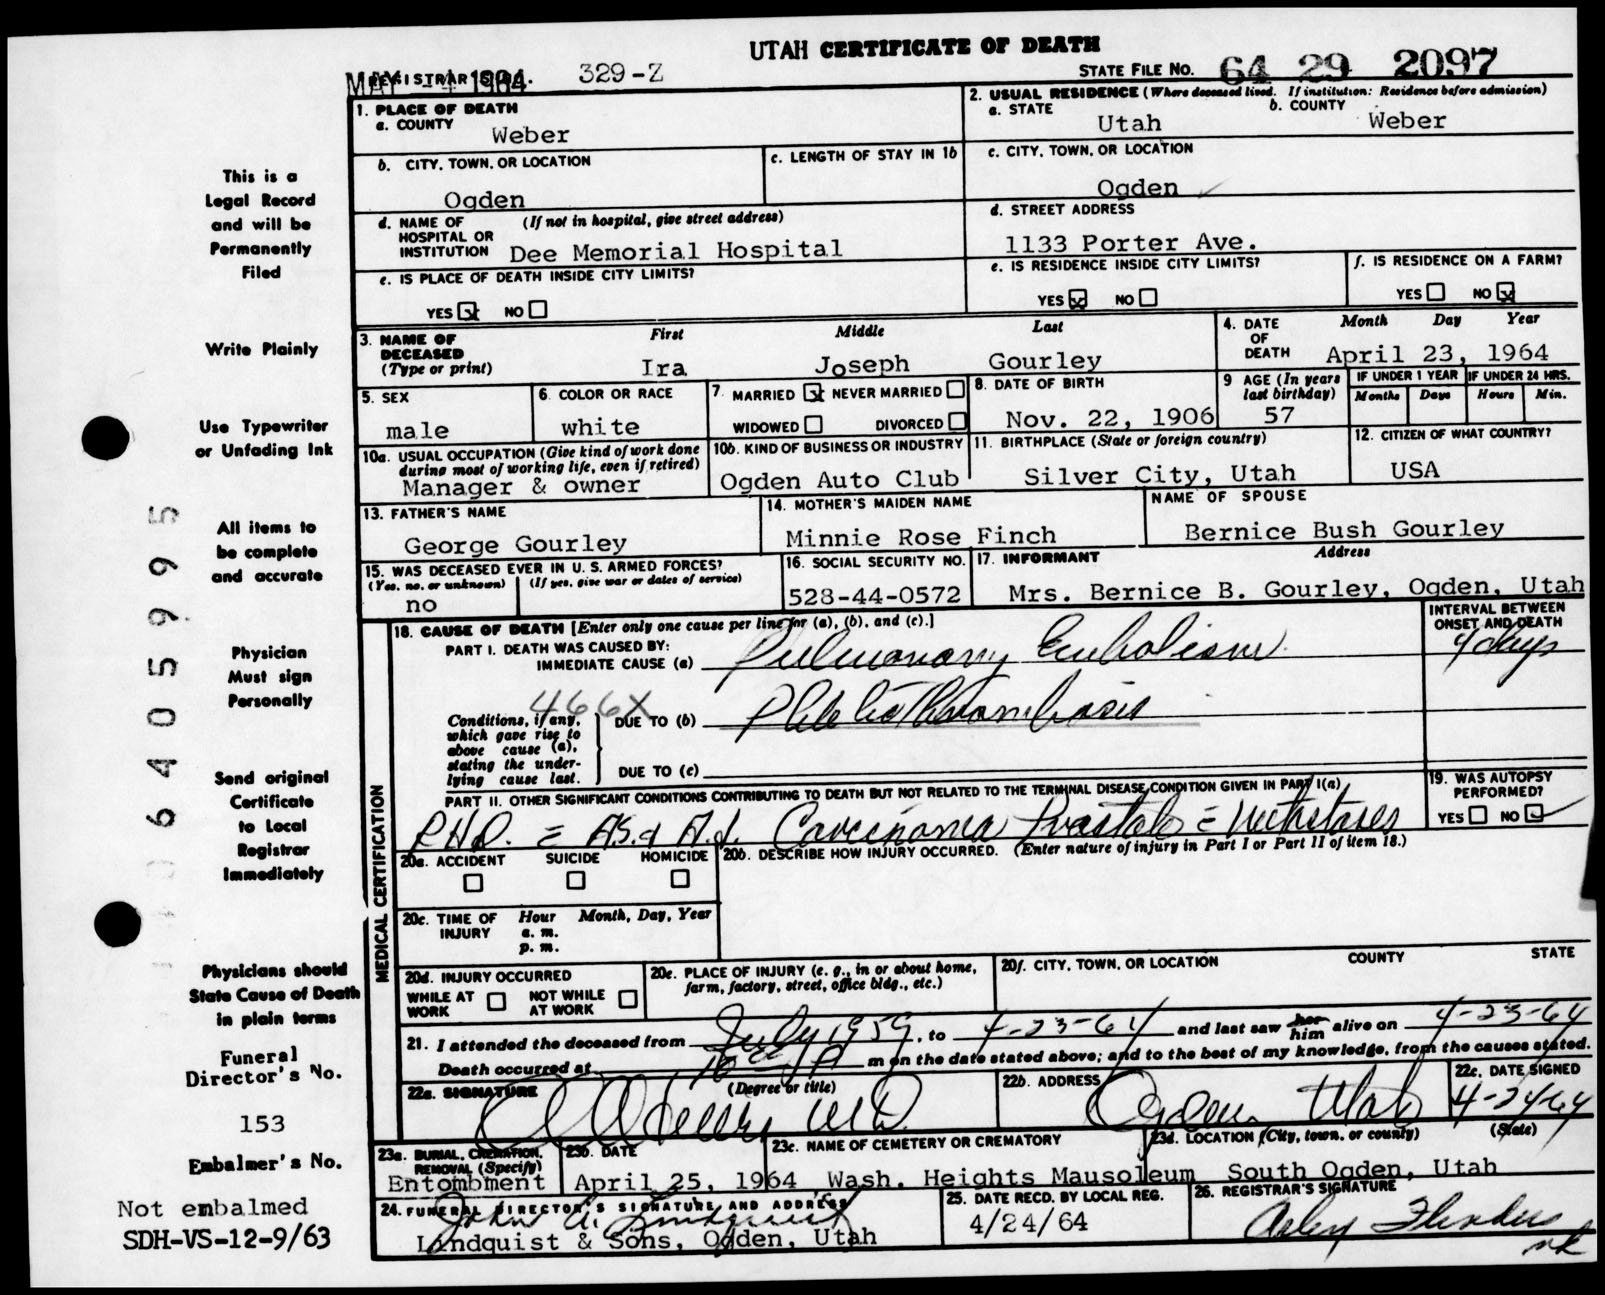 UTAH CERTIFICATE OF DEATH
MAY -4 1964 REGISTRAR'S NO. 329-Z
STATE FILE NO. 64 29 2097
1. PLACE OF DEATH
a. COUNTY
Weber
2. USUAL RESIDENCE (Where deceased lived. If institution: Residence before admission)
a. STATE b. COUNTY
Utah Weber
b. CITY, TOWN, OR LOCATION
Ogden
c. LENGTH OF STAY IN 1b
c. CITY, TOWN, OR LOCATION
Ogden
d. NAME OF HOSPITAL OR INSTITUTION (If not in hospital, give street address)
Dee Memorial Hospital
d. STREET ADDRESS
1133 Porter Ave.
e. IS PLACE OF DEATH INSIDE CITY LIMITS?
YES x NO
e. IS RESIDENCE INSIDE CITY LIMITS?
YES x NO
f. IS RESIDENCE ON A FARM?
YES NO x
3. NAME OF DECEASED (Type or print)
First Middle Last
Ira Joseph Gourley
4. DATE OF DEATH Month Day Year
April 23, 1964
5. SEX
male
6. COLOR OR RACE
white
7. MARRIED x NEVER MARRIED
WIDOWED DIVORCED
8. DATE OF BIRTH
Nov. 22, 1906
9 AGE (In years last birthday)
57
IF UNDER 1 YEAR IF UNDER 24 HRS.
Months Days Hours Min.
10a. USUAL OCCUPATION (Give kind of work done during most of working life, even if retired)
Manager & owner
10b. KIND OF BUSINESS OR INDUSTRY
Ogden Auto Club
11. BIRTHPLACE (State or foreign country)
Silver City, Utah
12. CITIZEN OF WHAT COUNTRY?
USA
13. FATHER'S NAME
George Gourley
14. MOTHER'S MAIDEN NAME
Minnie Rose Finch
NAME OF SPOUSE
Bernice Bush Gourley
15. WAS DECEASED EVER IN U. S. ARMED FORCES?
(Yes, no, or unknown) (If yes, give war or dates of service)
no
16. SOCIAL SECURITY NO.
528-44-0572
17. INFORMANT Address
Mrs. Bernice B. Gourley, Ogden, Utah
MEDICAL CERTIFICATION
18. CAUSE OF DEATH [Enter only one cause per line for (a), (b), and (c).]
INTERVAL BETWEEN ONSET AND DEATH
PART I. DEATH WAS CAUSED BY:
IMMEDIATE CAUSE (a) Pulmonary Embolism 4 days
466X
Conditions, if any, which gave rise to above cause (a), stating the underlying cause last.
DUE TO (b) Phlebothrombosis
DUE TO (c)
PART II. OTHER SIGNIFICANT CONDITIONS CONTRIBUTING TO DEATH BUT NOT RELATED TO THE TERMINAL DISEASE CONDITION GIVEN IN PART I(a)
Carcinoma Prostate
19. WAS AUTOPSY PERFORMED?
YES NO ✓
20a. ACCIDENT SUICIDE HOMICIDE
20b. DESCRIBE HOW INJURY OCCURRED. (Enter nature of injury in Part I or Part II of item 18.)
20c. TIME OF INJURY Hour Month, Day, Year
a. m.
p. m.
20d. INJURY OCCURRED
WHILE AT WORK NOT WHILE AT WORK
20e. PLACE OF INJURY (e. g., in or about home, farm, factory, street, office bldg., etc.)
20f. CITY, TOWN, OR LOCATION COUNTY STATE
21. I attended the deceased from July 1959, to 4-23-64 and last saw her him alive on 4-23-64
Death occurred at m on the date stated above; and to the best of my knowledge, from the causes stated.
22a. SIGNATURE (Degree or title)
MD
22b. ADDRESS
Ogden Utah
22c. DATE SIGNED
4-24-64
23a. BURIAL, CREMATION, REMOVAL (Specify)
Entombment
23b. DATE
April 25, 1964
23c. NAME OF CEMETERY OR CREMATORY
Wash. Heights Mausoleum
23d. LOCATION (City, town, or county) (State)
South Ogden, Utah
24. FUNERAL DIRECTOR'S SIGNATURE AND ADDRESS
John A. Lindquist
Lindquist & Sons, Ogden, Utah
25. DATE RECD. BY LOCAL REG.
4/24/64
26. REGISTRAR'S SIGNATURE
This is a
Legal Record
and will be
Permanently
Filed
Write Plainly
Use Typewriter
or Unfading Ink
All items to
be complete
and accurate
Physician
Must sign
Personally
Send original
Certificate
to Local
Registrar
Immediately
Physicians should
State Cause of Death
in plain terms
Funeral
Director's No.
153
Embalmer's No.
Not embalmed
SDH-VS-12-9/63